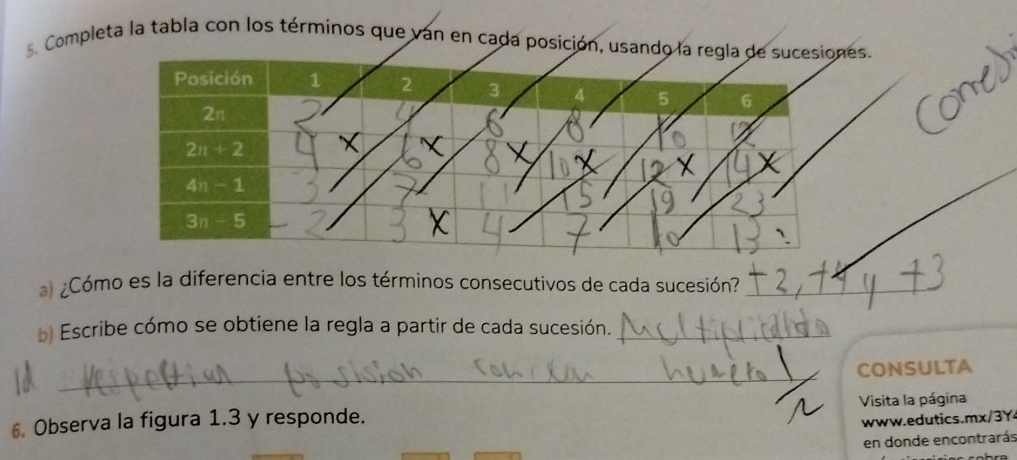 5. Completa la tabla con los términos que van en cada posición, usando la regla de sucesiones.
Posición 1 2 3 4 5 6
2n 2 4 6 8 10 12
2n + 2 4 x 6 x 8 x 10 x 12 x 14 x
4n - 1 3 7 11 15 19 23
3n - 5 -2 3 x 4 7 10 13
a) ¿Cómo es la diferencia entre los términos consecutivos de cada sucesión? +2, +4 y +3
b) Escribe cómo se obtiene la regla a partir de cada sucesión.
posision numero
CONSULTA
Visita la página
6. Observa la figura 1.3 y responde.
www.edutics.mx/3Y
en donde encontrarás